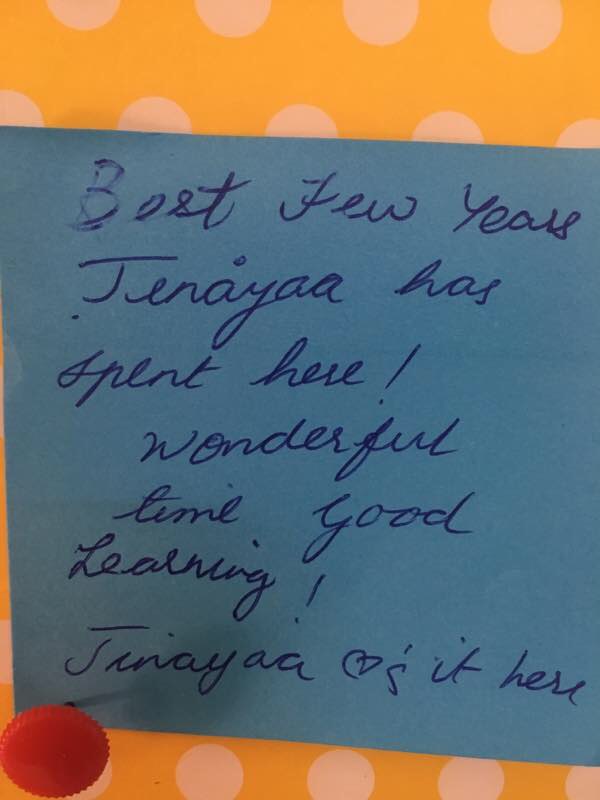 Best Few Years
Jinayaa has
spent here!
wonderful
time Good
Learning!
Jinayaa ♡'s it here